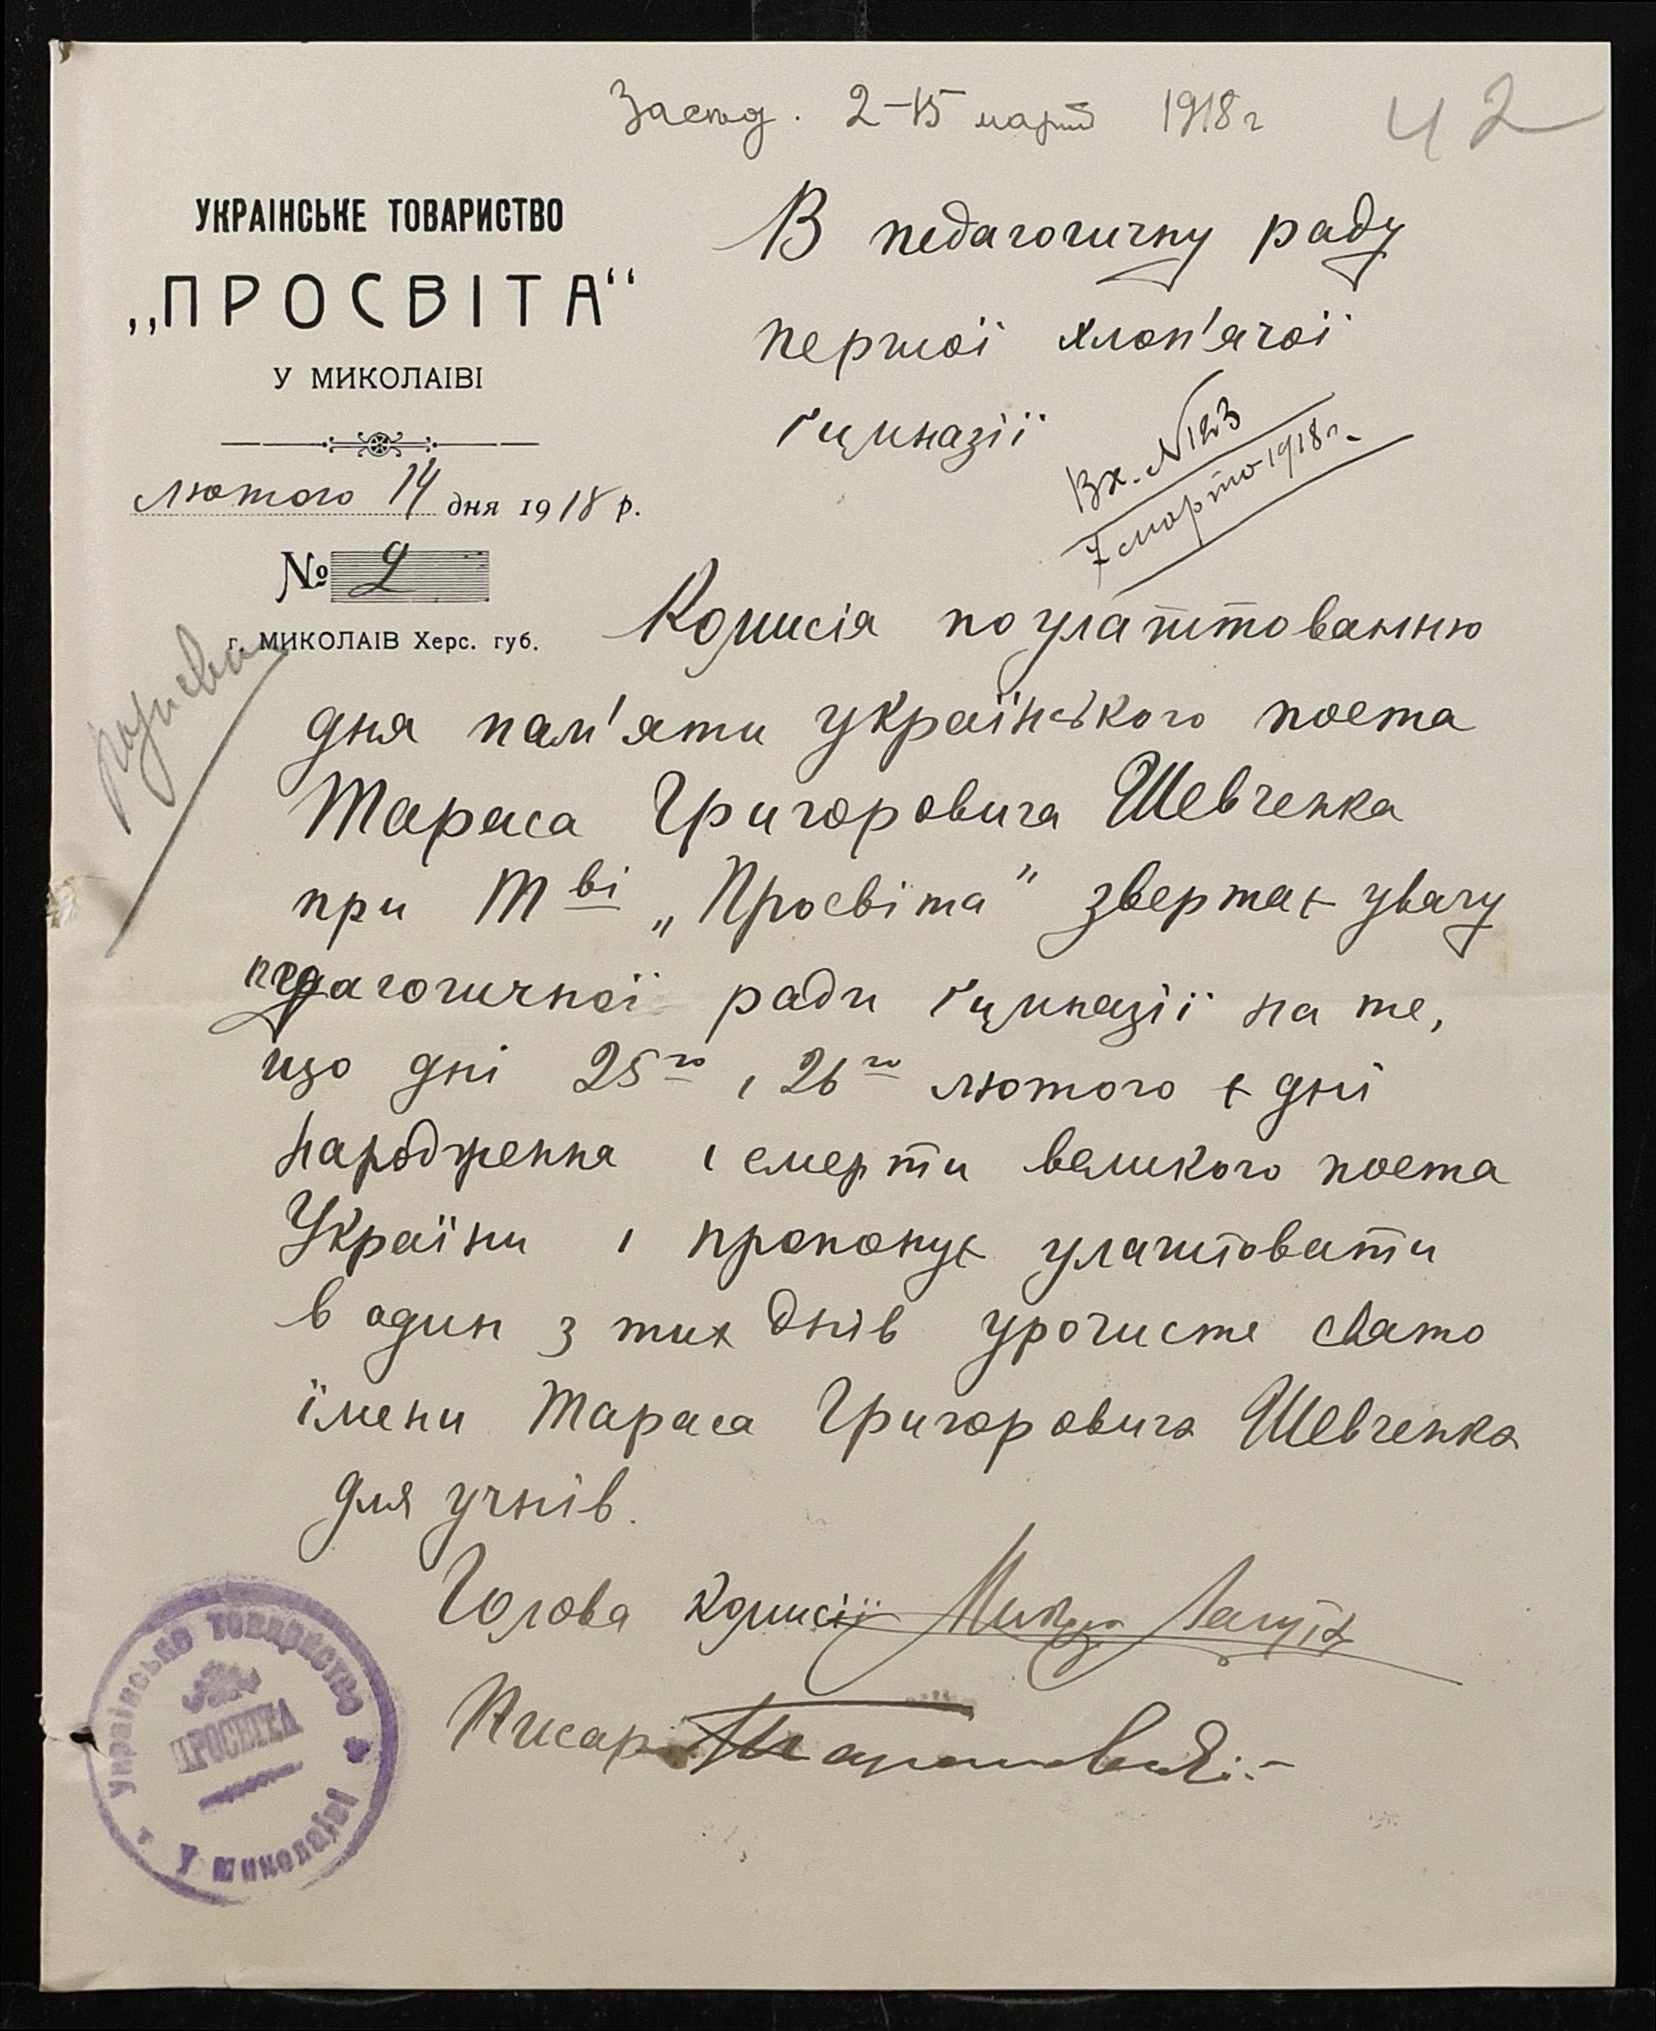 Засед. 2-15 марта 1918 г
42
УКРАІНСЬКЕ ТОВАРИСТВО
„ПРОСВІТА“
У МИКОЛАІВІ
лютого 14 дня 1918 р.
№ 2
г. МИКОЛАІВ Херс. губ.
В педагогичну раду
першої хлоп'ячої
ґимназії
Вх. N 123
7 марта 1918 г.
Комисія по улаштованню
дня пам'яти українського поета
Тараса Григоровича Шевченка
при Т-ві „Просвіта" звертає увагу
педагогичної ради ґимназії на те,
що дні 25го і 26го лютого є дні
народження і смерти великого поета
Україïни і пропонує улаштовати
в один з тих днів урочисте свято
їмени Тараса Григоровича Шевченка
для учнів.
Голова комисії
Писар
Українське товариство
ПРОСВІТА
у Миколаїві